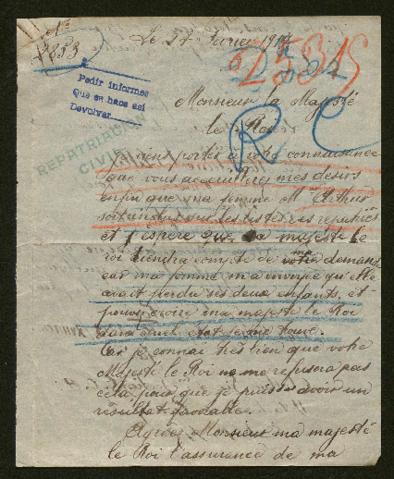 Le 27 Fevrier 191
Pedir informes
Que se hace asi
Devolver
Monsieur la Majesté
le Roi
REPATRIACION
CIVIL
R C
Je viens porter à votre connaissance
que vous accueilliez mes desirs
enfin que ma femme Mme Arthur
soit les listes des rapatriés
et J'espère que sa majesté le
roi tiendra compte de ma demande
car ma femme m'a envoyé qu'elle
avait perdu ses deux enfants, et
pouvez croire ma majesté le Roi
dans quel etat je me trouve.
Car je connai très bien que votre
Majesté le Roi ne me refusera pas
cela pour que je puisse avoir un
résultat favorable.
Agréez Monsieur ma majesté
le Roi l'assurance de ma